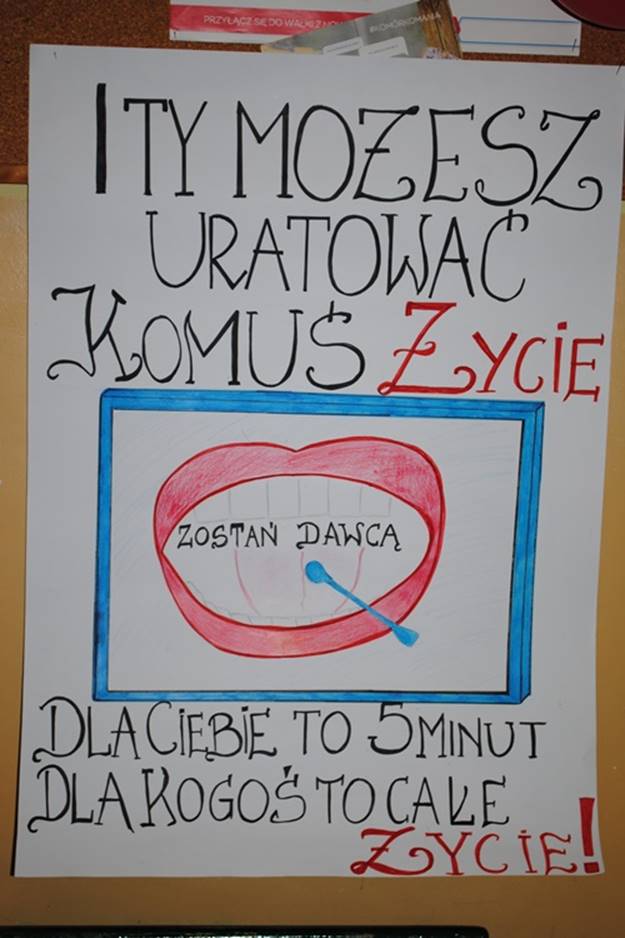 PRZYŁĄCZ SIĘ DO WALKI Z
#KOMÓRKOMANIA
I TY MOŻESZ
URATOWAĆ
KOMUŚ ŻYCIE
ZOSTAŃ DAWCĄ
DLA CIEBIE TO 5 MINUT
DLA KOGOŚ TO CAŁE
ŻYCIE!